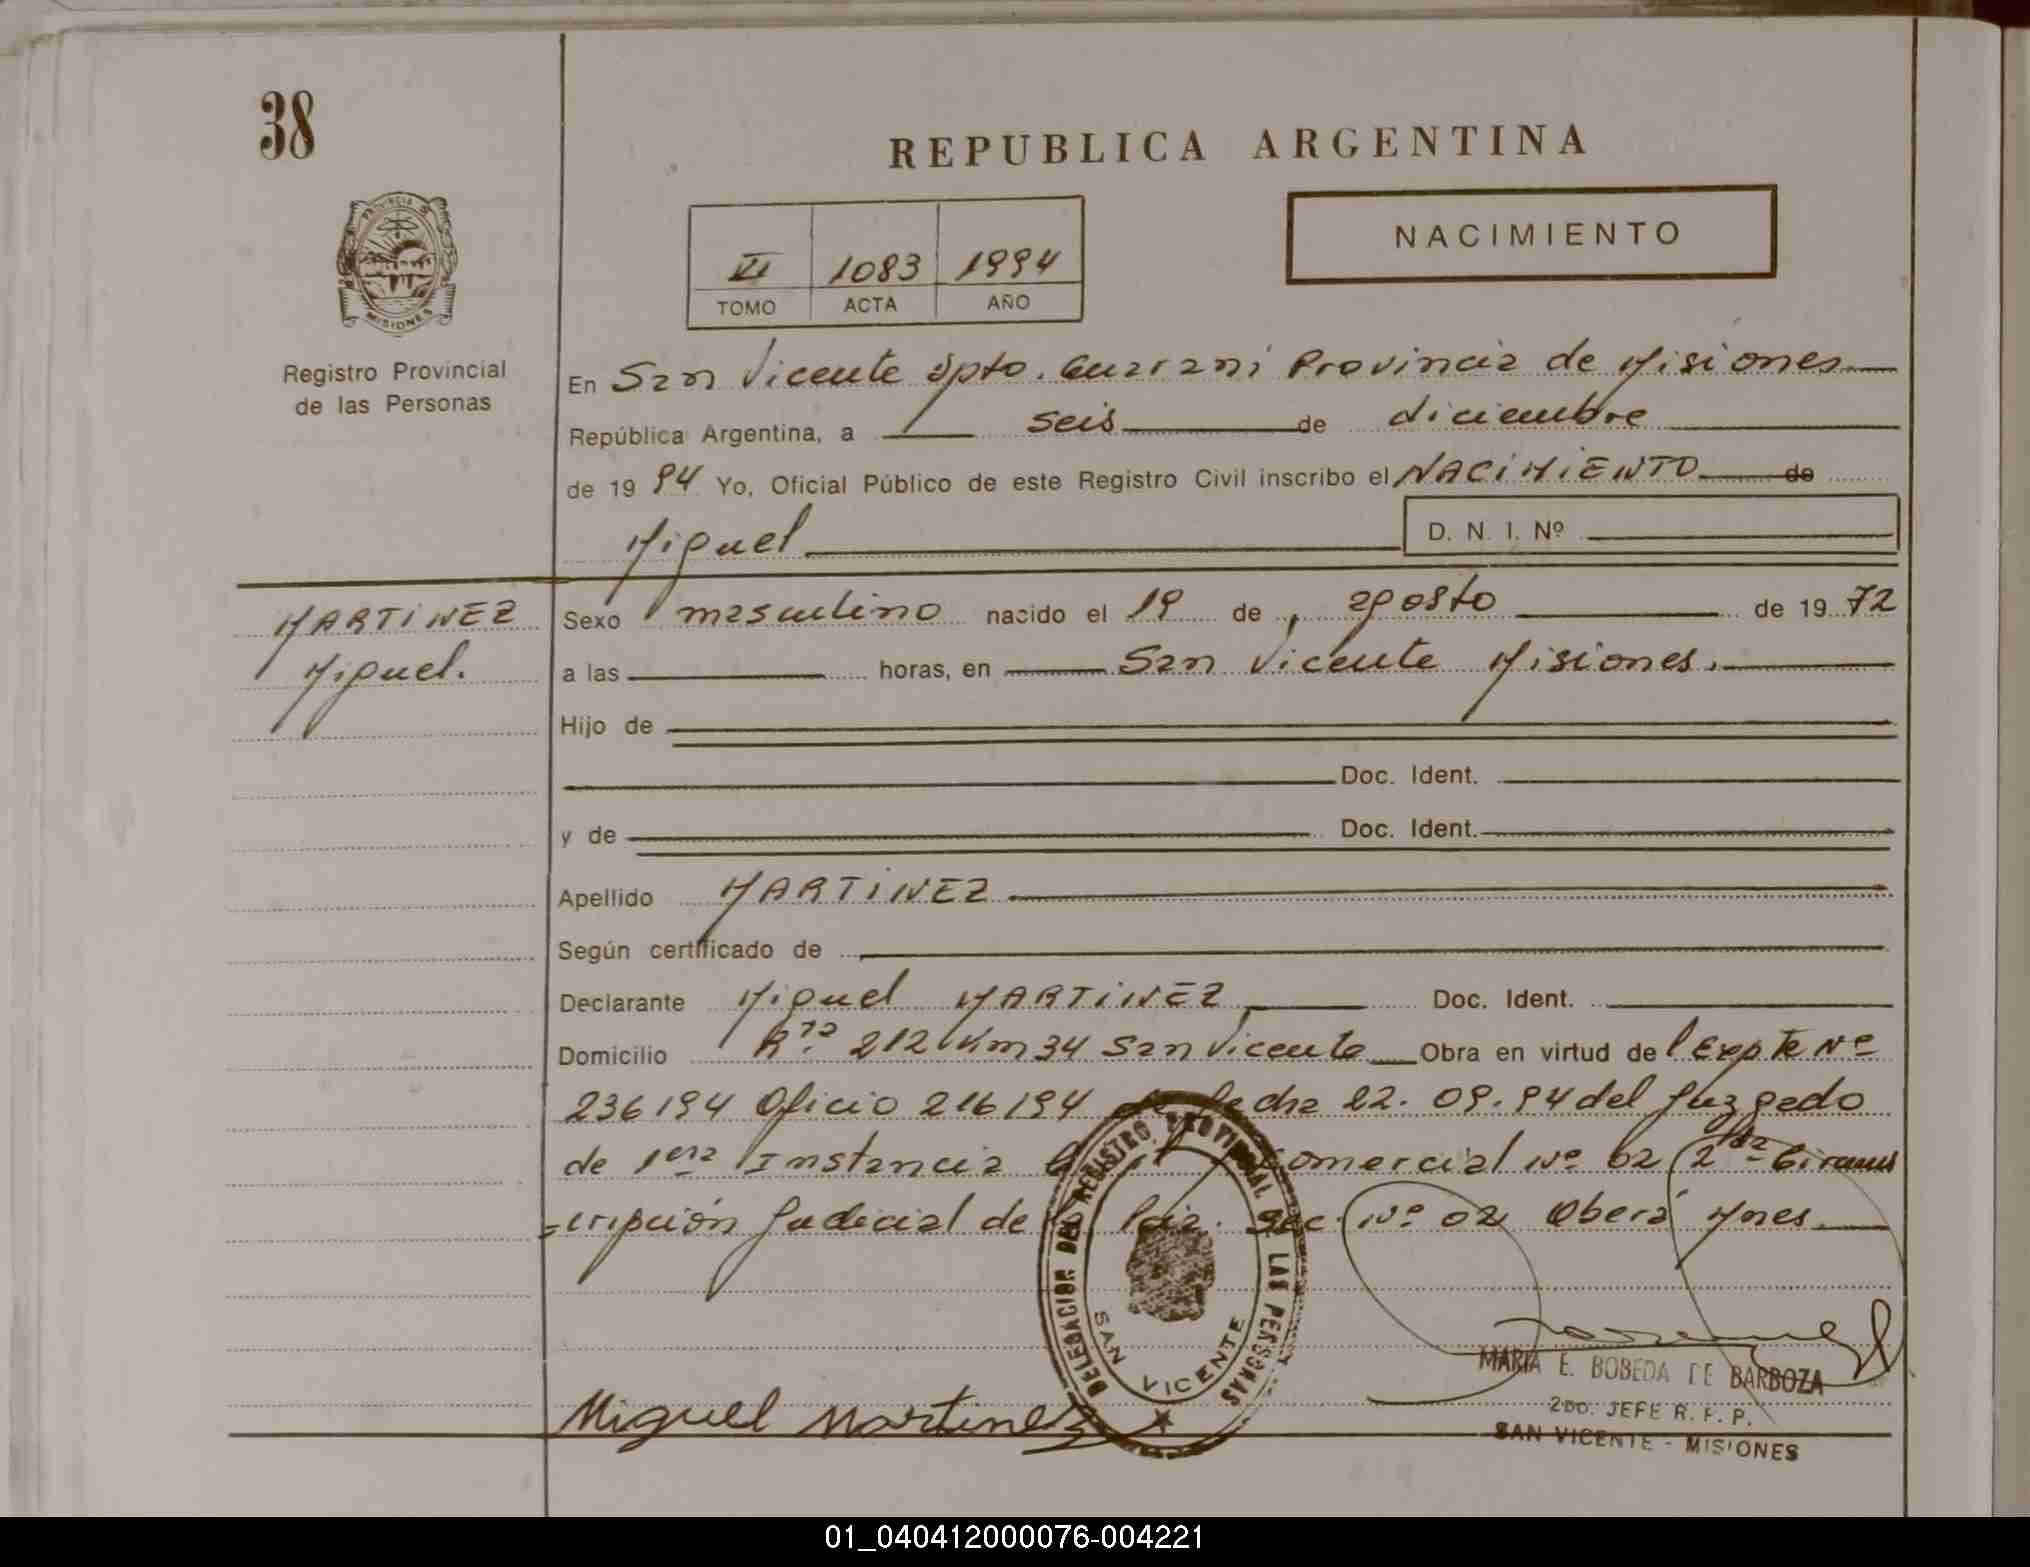 38
REPUBLICA ARGENTINA
NACIMIENTO
VI 1083 1994
TOMO ACTA AÑO
PROVINCIA DE MISIONES
Registro Provincial
de las Personas
En San Vicente Dpto. Guarani Provincia de Misiones
República Argentina, a seis de diciembre
de 19 94 Yo, Oficial Público de este Registro Civil inscribo el NACIMIENTO de
Miguel D. N. I. Nº
MARTINEZ
Miguel.
Sexo masculino nacido el 19 de agosto de 19 72
a las horas, en San Vicente Misiones.
Hijo de
Doc. Ident.
y de Doc. Ident.
Apellido MARTINEZ
Según certificado de
Declarante Miguel MARTINEZ Doc. Ident.
Domicilio Rta 212 Km 34 San Vicente Obra en virtud del Expte Nº
236/94 Oficio 216/94 de fecha 22.09.94 del Juzgado
de 1era Instancia Comercial Nº 02 2da Circuns
=cripción Judicial de la Pcia. Sec. Nº 02 Oberá Mnes.
DELEGACION DEL REGISTRO PROVINCIAL DE LAS PERSONAS
SAN VICENTE
Miguel Martinez
MARIA E. BOBEDA DE BARBOZA
2DO. JEFE R. P. P.
SAN VICENTE - MISIONES
01_040412000076-004221